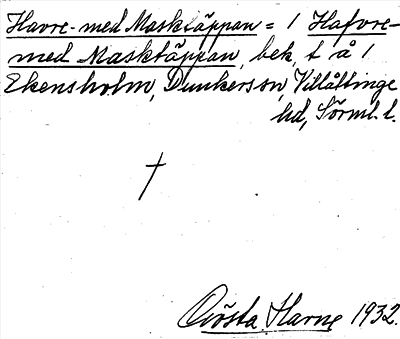 Havre-med Masktäppan = 1 Hafvre-
med Masktäppan, bek. t å 1
Ekensholm, Dunkers sn, Villåttinge
hd, Sörml. l.
†
Gösta Harne 1932.